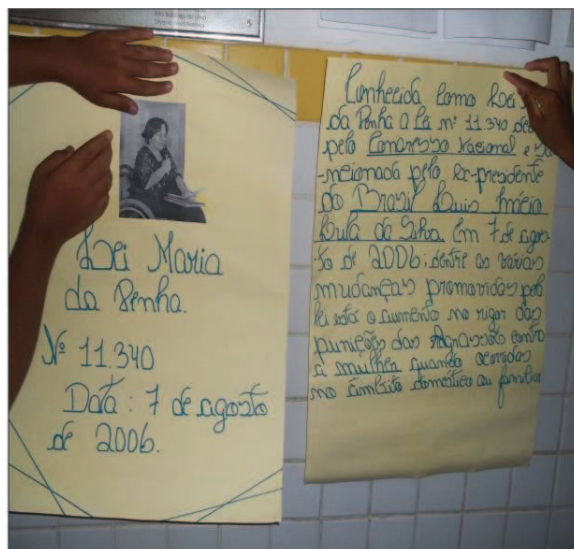 Lei Maria
da Penha.
Nº 11.340
Data: 7 de agosto
de 2006.
Conhecida como Lei
da Penha a Lei nº 11.340
pelo Congresso Nacional e
-ncionada pelo ex-presidente
do Brasil Luis Inácio
Lula da Silva em 7 de agos-
to de 2006; dentre as várias
mudanças promovidas pela
lei está o aumento no rigor das
punições das contra
a mulher quando ocorridas
no âmbito doméstico ou familiar